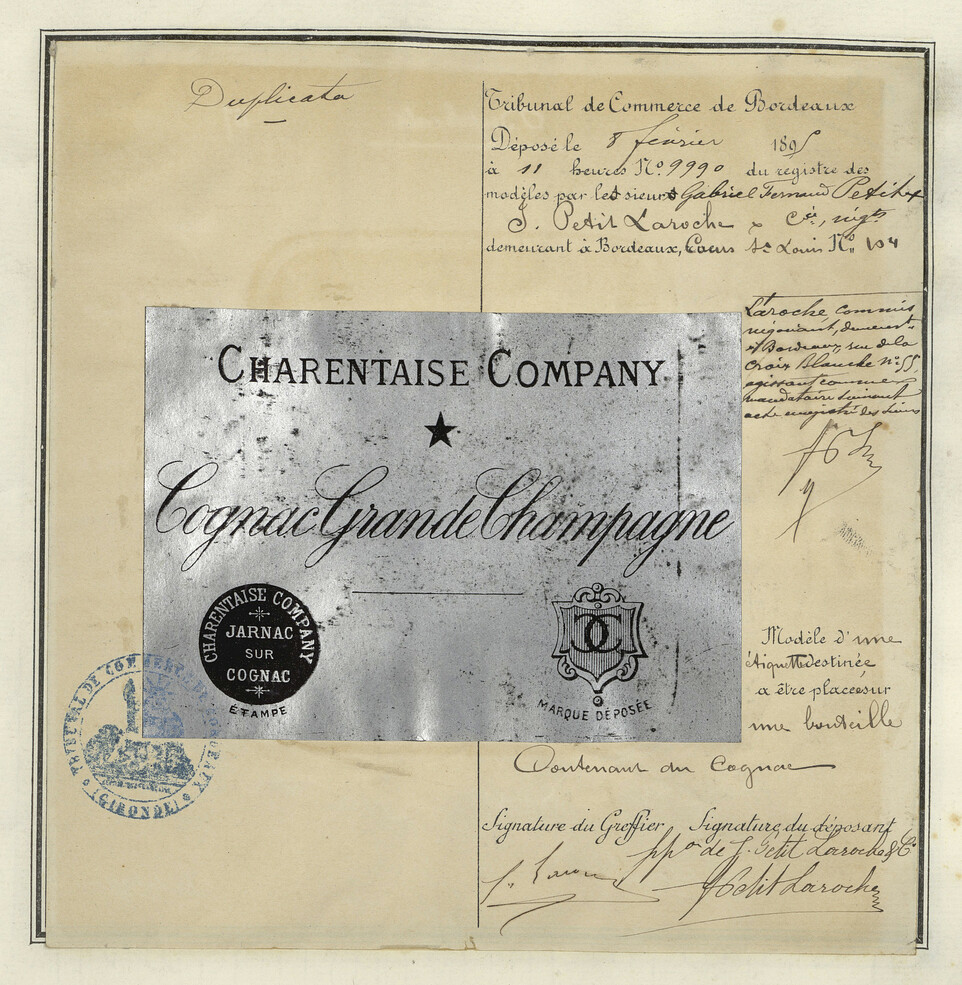 Duplicata
Tribunal de Commerce de Bordeaux
Déposé le 8 février 1895
à 11 heures N° 9990 du registre des
modèles par les sieurs Gabriel Fernand Petit
J. Petit Laroche & Cie, négts
demeurant à Bordeaux, Cours St Louis N° 104
Laroche commis
négociant, demeurt
à Bordeaux, rue de la
Croix Blanche n° 55,
agissant comme
mandataire suivant
acte enregistré
CHARENTAISE COMPANY
Cognac Grande Champagne
CHARENTAISE COMPANY
JARNAC
SUR
COGNAC
ÉTAMPE
CC
MARQUE DÉPOSÉE
Modèle d'une
étiquette destinée
a être placée sur
une bouteille
Contenant du Cognac
TRIBUNAL DE COMMERCE DE BORDEAUX
(GIRONDE)
Signature du Greffier Signature du déposant
ppon de J. Petit Laroche & Cie
Petit Laroche